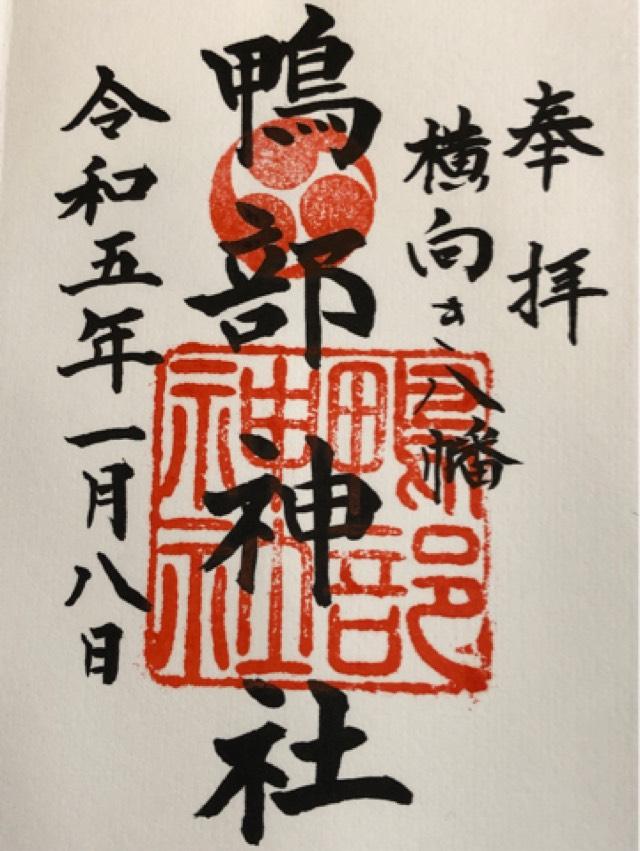 奉拝
横向き八幡
鴨部神社
鴨部神社
令和五年一月八日